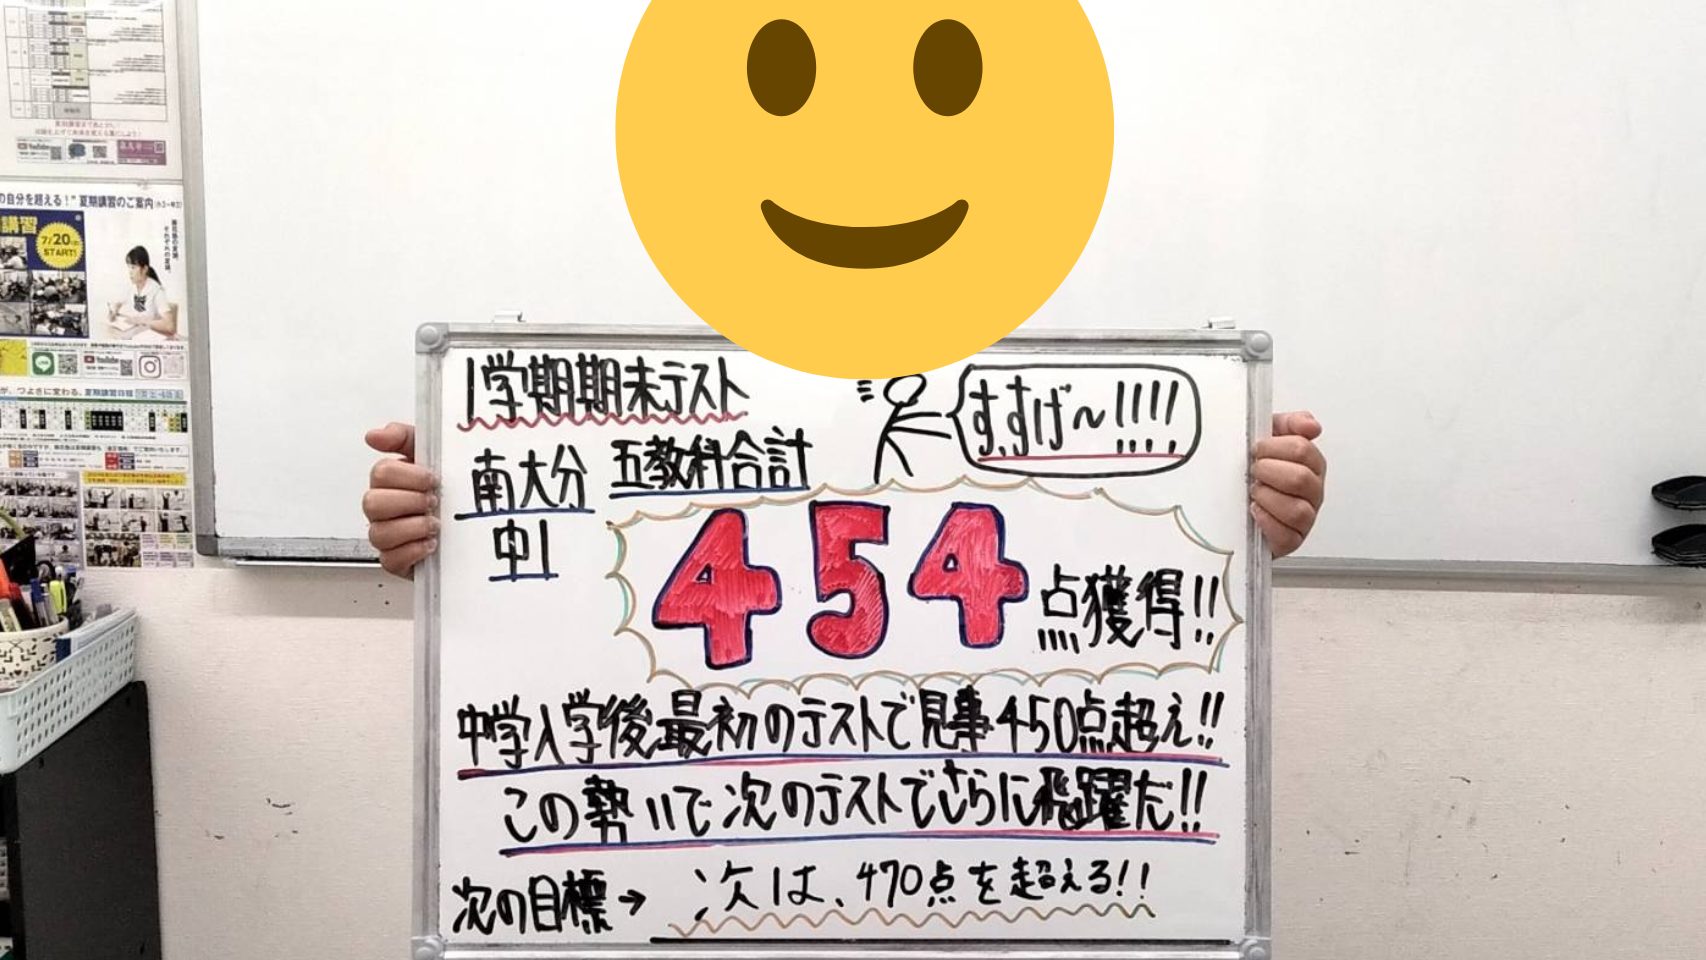 の自分を超える！" 夏期講習のご案内
講習
7/20
START!
YouTube
が、つよさに変わる。夏期講習日程
1学期期末テスト
す、すげ〜!!!!
南大分
中1
五教科合計
454点獲得!!
中学入学後最初のテストで見事450点超え!!
この勢いで次のテストでさらに飛躍だ!!
次の目標→ 次は、470点を超える!!